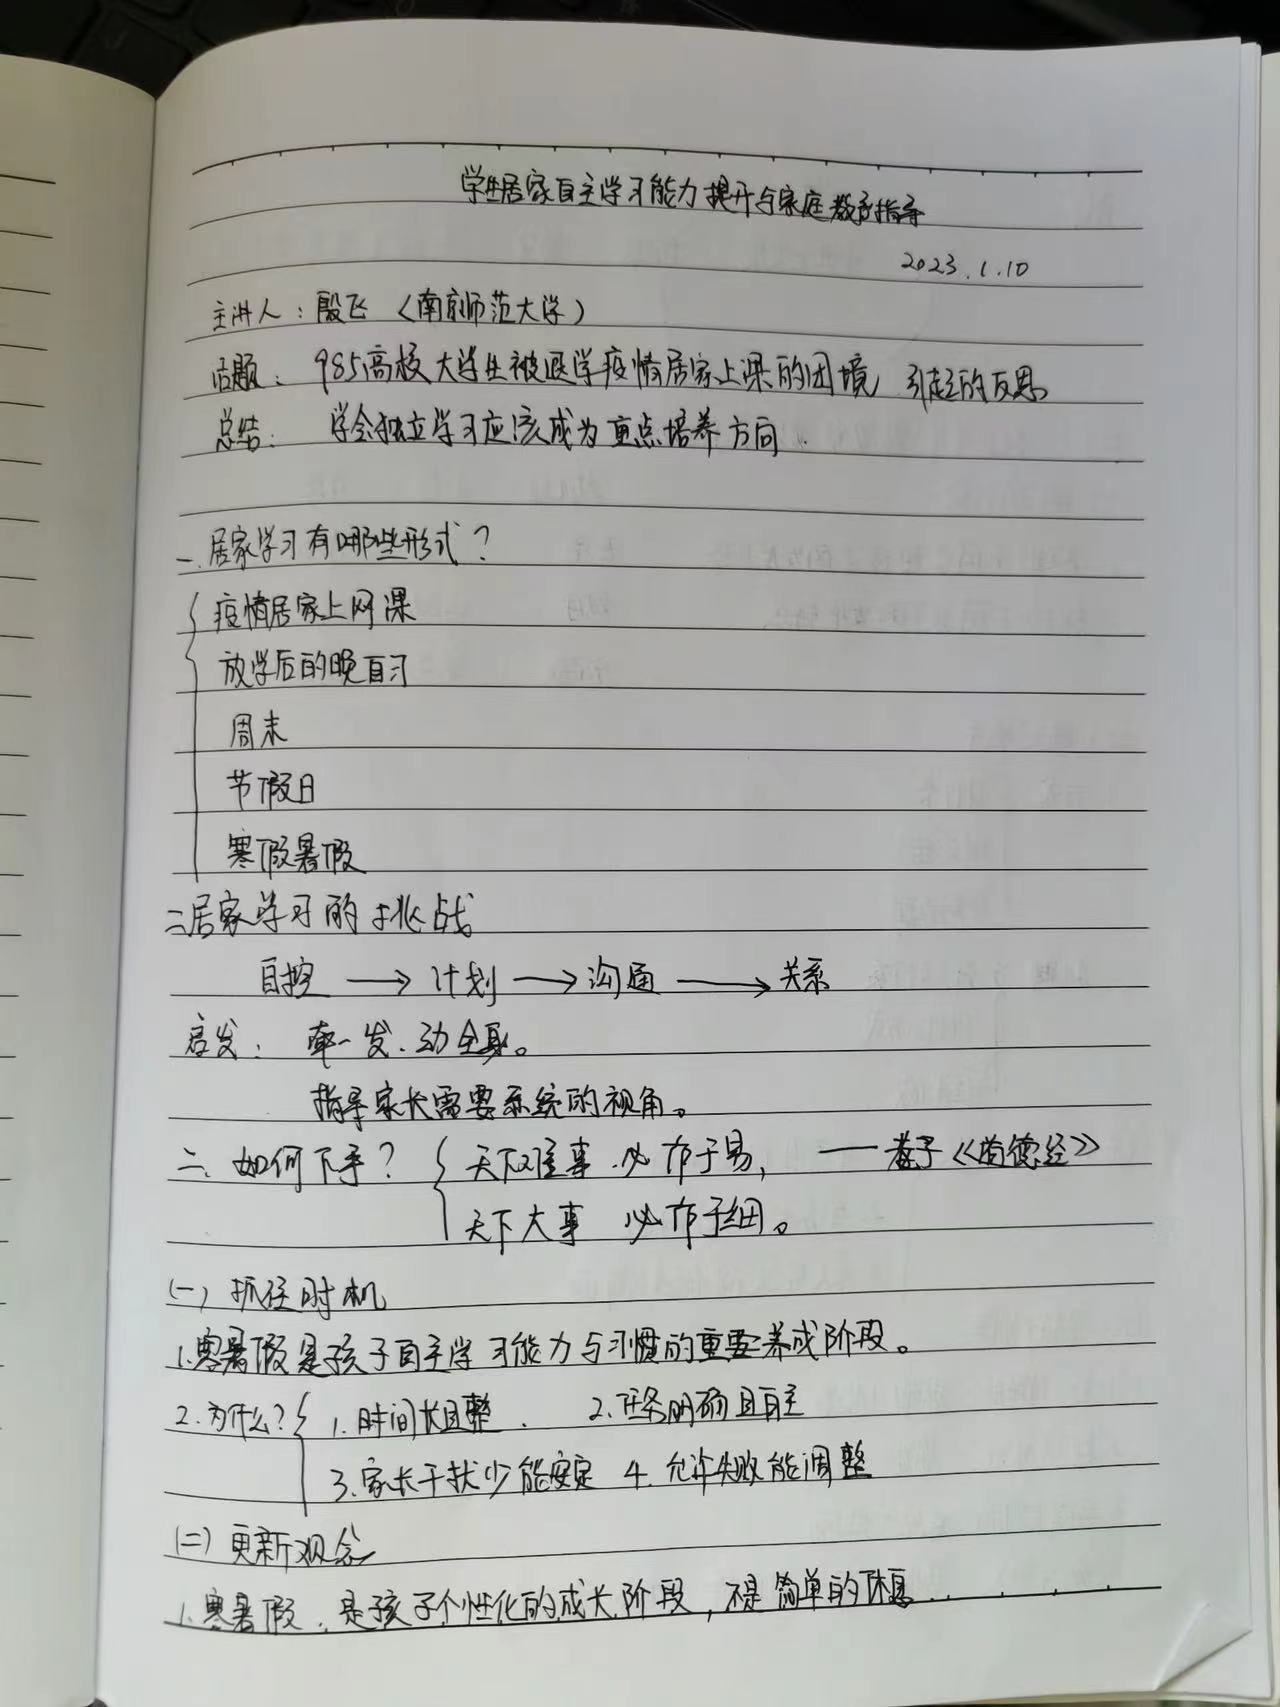 学生居家自主学习能力提升与家庭教育指导
2023.1.10
主讲人：殷飞（南京师范大学）
话题：985高校大学生被退学疫情居家上课的困境，引起的反思
总结：学会独立学习应该成为重点培养方向.
一.居家学习有哪些形式？
疫情居家上网课
放学后的晚自习
周末
节假日
寒假暑假
二居家学习的挑战
自控→计划→沟通→关系
启发：牵一发.动全身。
指导家长需要系统的视角。
二、如何下手？ 天下难事 必作于易， ——老子《道德经》
天下大事 必作于细。
(一)抓住时机
1.寒暑假是孩子自主学习能力与习惯的重要养成阶段。
2.为什么？ 1.时间长且整. 2.任务明确且自主
3.家长干扰少能安定 4.允许失败能调整
(二)更新观念
1.寒暑假.是孩子个性化的成长阶段，不是简单的休息..